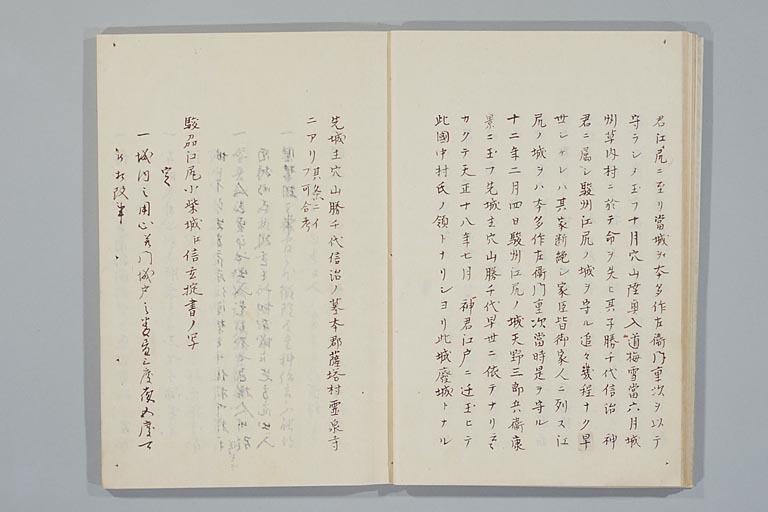 君江尻ニ至リ當城ヲ本多作左衞門重次ヲ以テ
守ラシメ玉フ十月穴山陸奥入道梅雪當六月城
州草内村ニ於テ命ヲ失ヒ其子勝千代信治 神
君ニ屬シ駿州江尻ノ城ヲ守ル追々幾程ナク早
世シケレハ其家断絶シ家臣皆御家人ニ列ス江
尻ノ城ヲハ本多作左衞門重次當時是ヲ守ル
十二年二月四日駿州江尻ノ城天野三郎兵衞康
景ニ玉フ先城主穴山勝千代早世ニ依テナリ
カクテ天正十八年七月 神君江戸ニ迁玉ヒテ
此國中村氏ノ領トナリシヨリ此城廢城トナル
先城主穴山勝千代信治ノ墓本郡薩埵村霊泉寺
ニアリ其条ニイフ可合考
駿刕江尾小柴城江信玄掟書ノ写
定
一 城内之用心若門城戸之番昼三度夜五度可
相改事